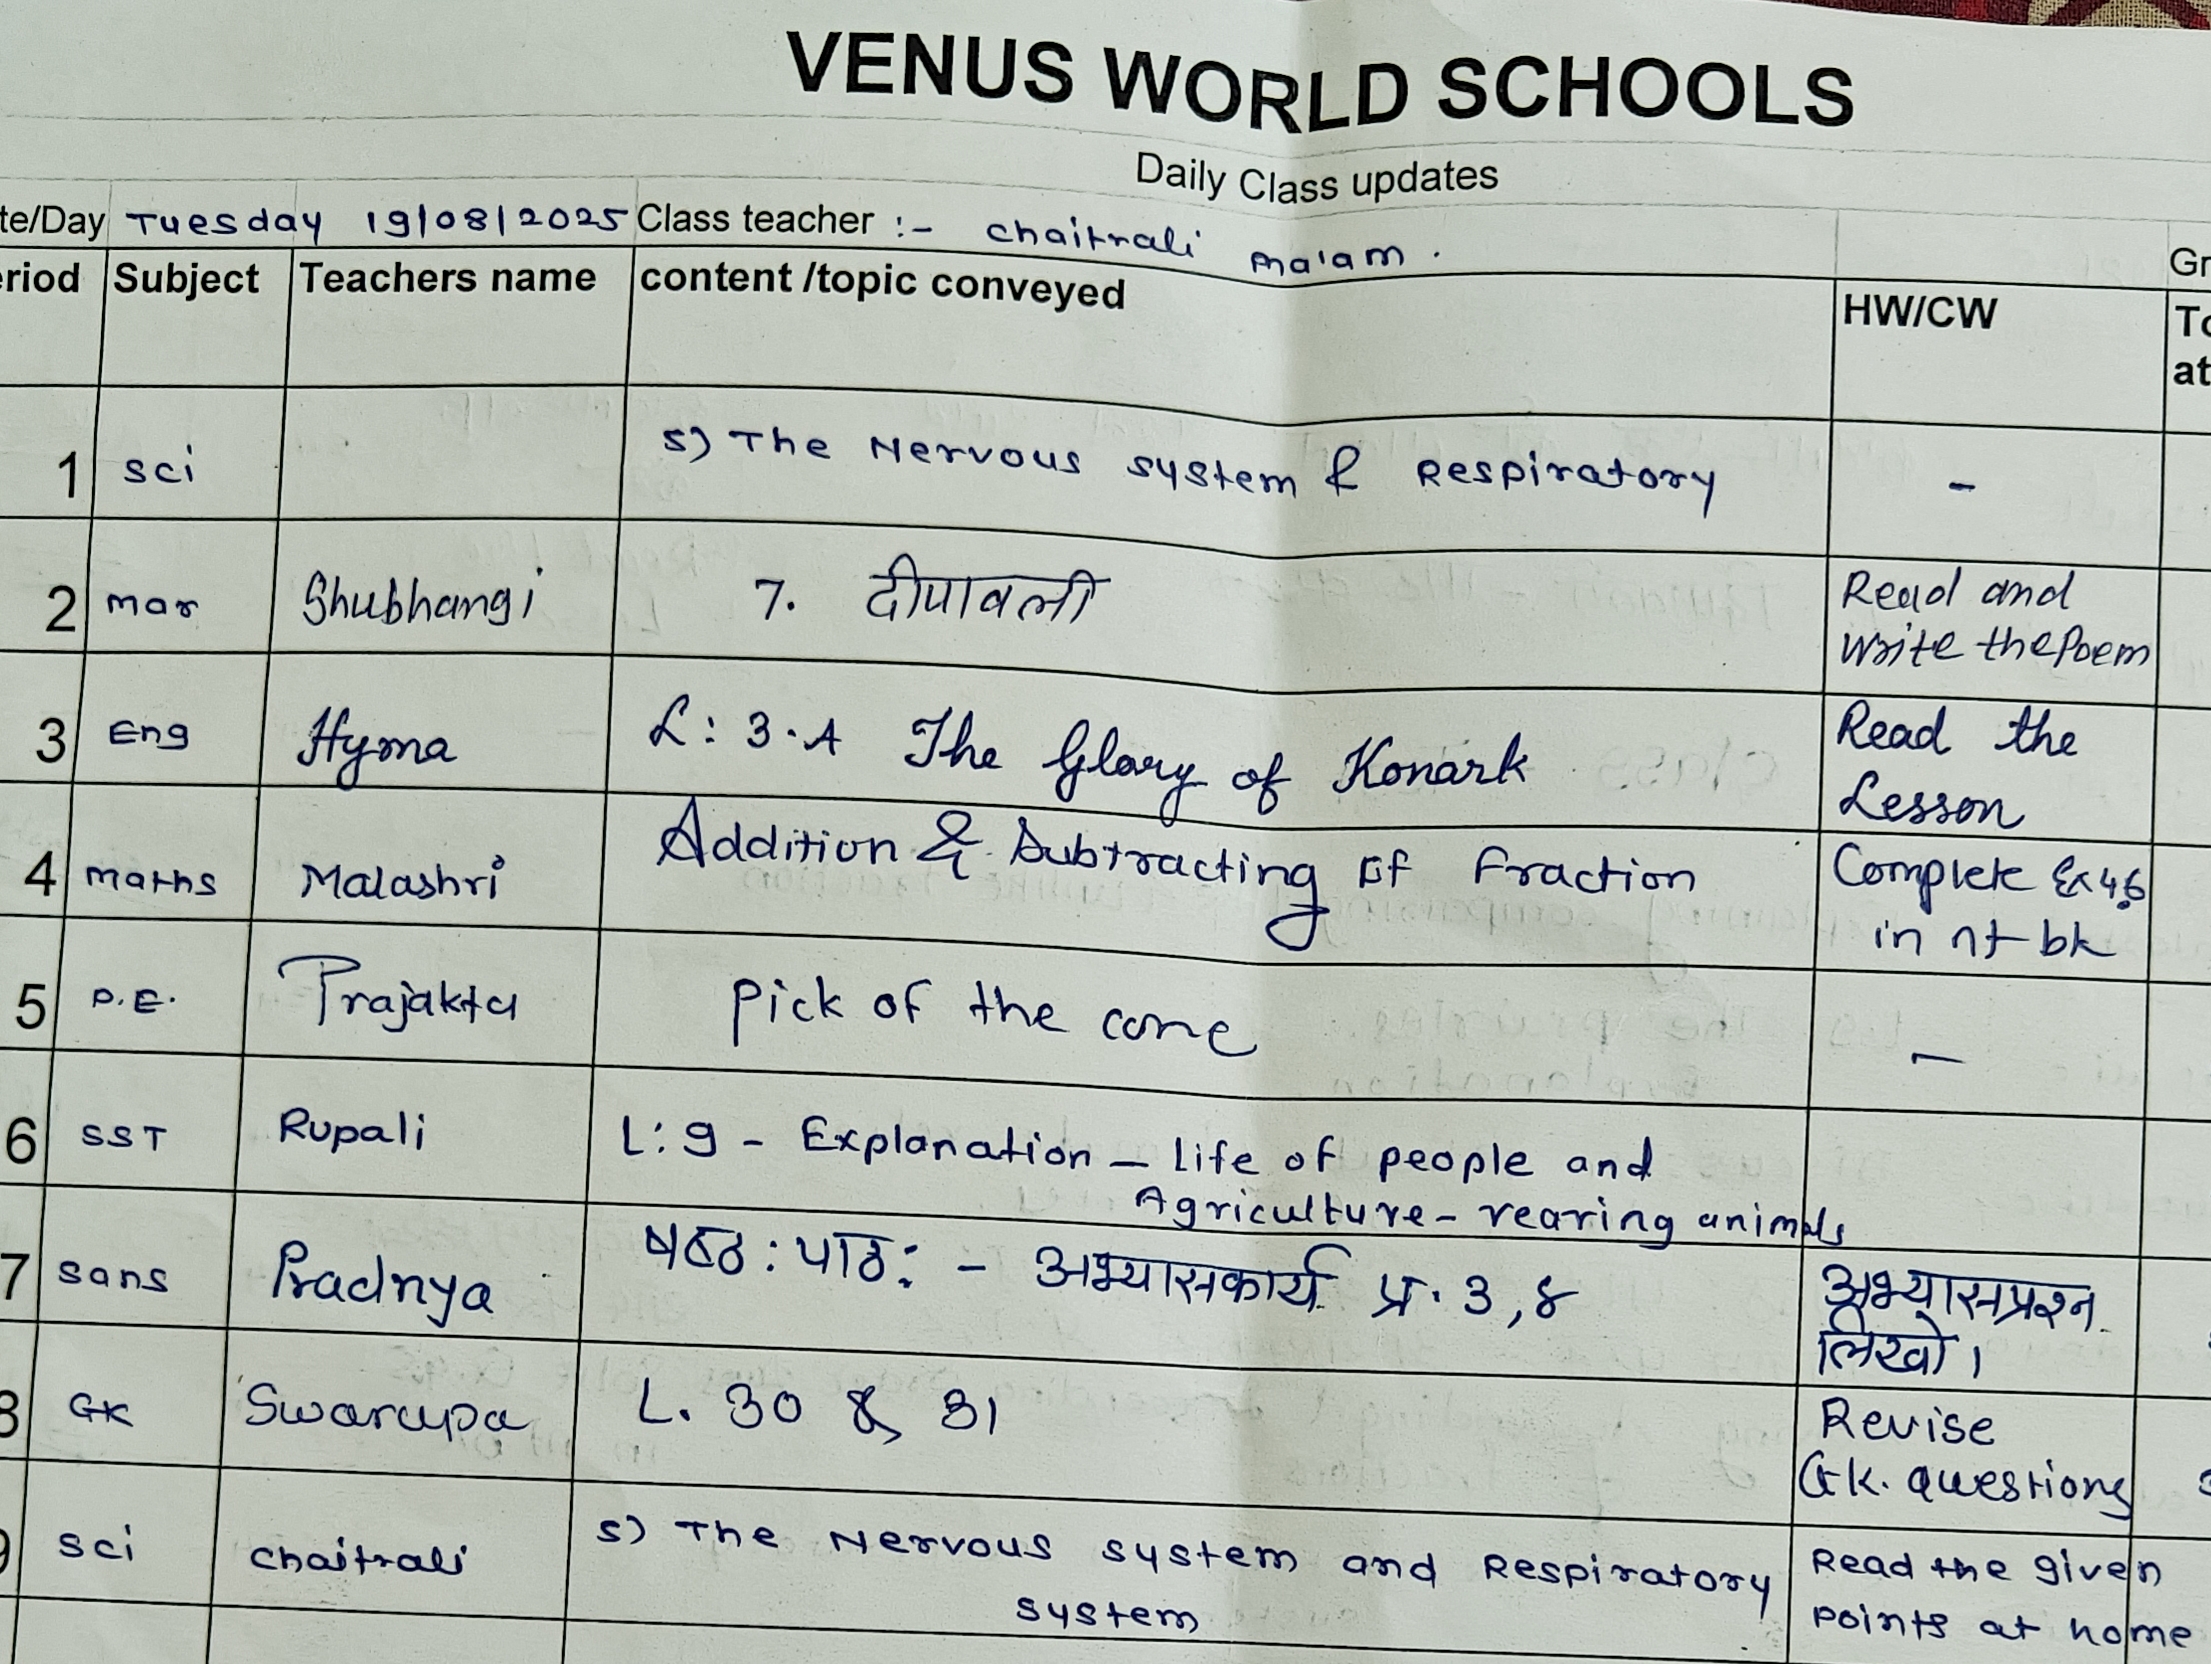 VENUS WORLD SCHOOLS
Daily Class updates
te/Day Tuesday 19/08/2025 Class teacher :- chaitrali ma'am. Gr
eriod Subject Teachers name content /topic conveyed HW/CW To
at
1 sci 5) The Nervous system & Respiratory -
2 mar Shubhangi 7. दीपावली Read and
write the Poem
3 Eng Hyma L: 3.A The Glory of Konark Read the
Lesson
4 maths Malashri Addition & Subtracting of Fraction Complete Ex 4.6
in nt bk
5 P.E. Prajakta Pick of the cone -
6 SST Rupali L: 9 - Explanation - life of people and
Agriculture - rearing animals
7 sans Pradnya षष्ठ: पाठ: - अभ्यासकार्य प्र. 3, ४ अभ्यासप्रश्न
लिखो।
8 GK Swarupa L. 30 & 31 Revise
G.K. questions
9 sci chaitrali 5) The Nervous system and Respiratory Read the given
system points at home